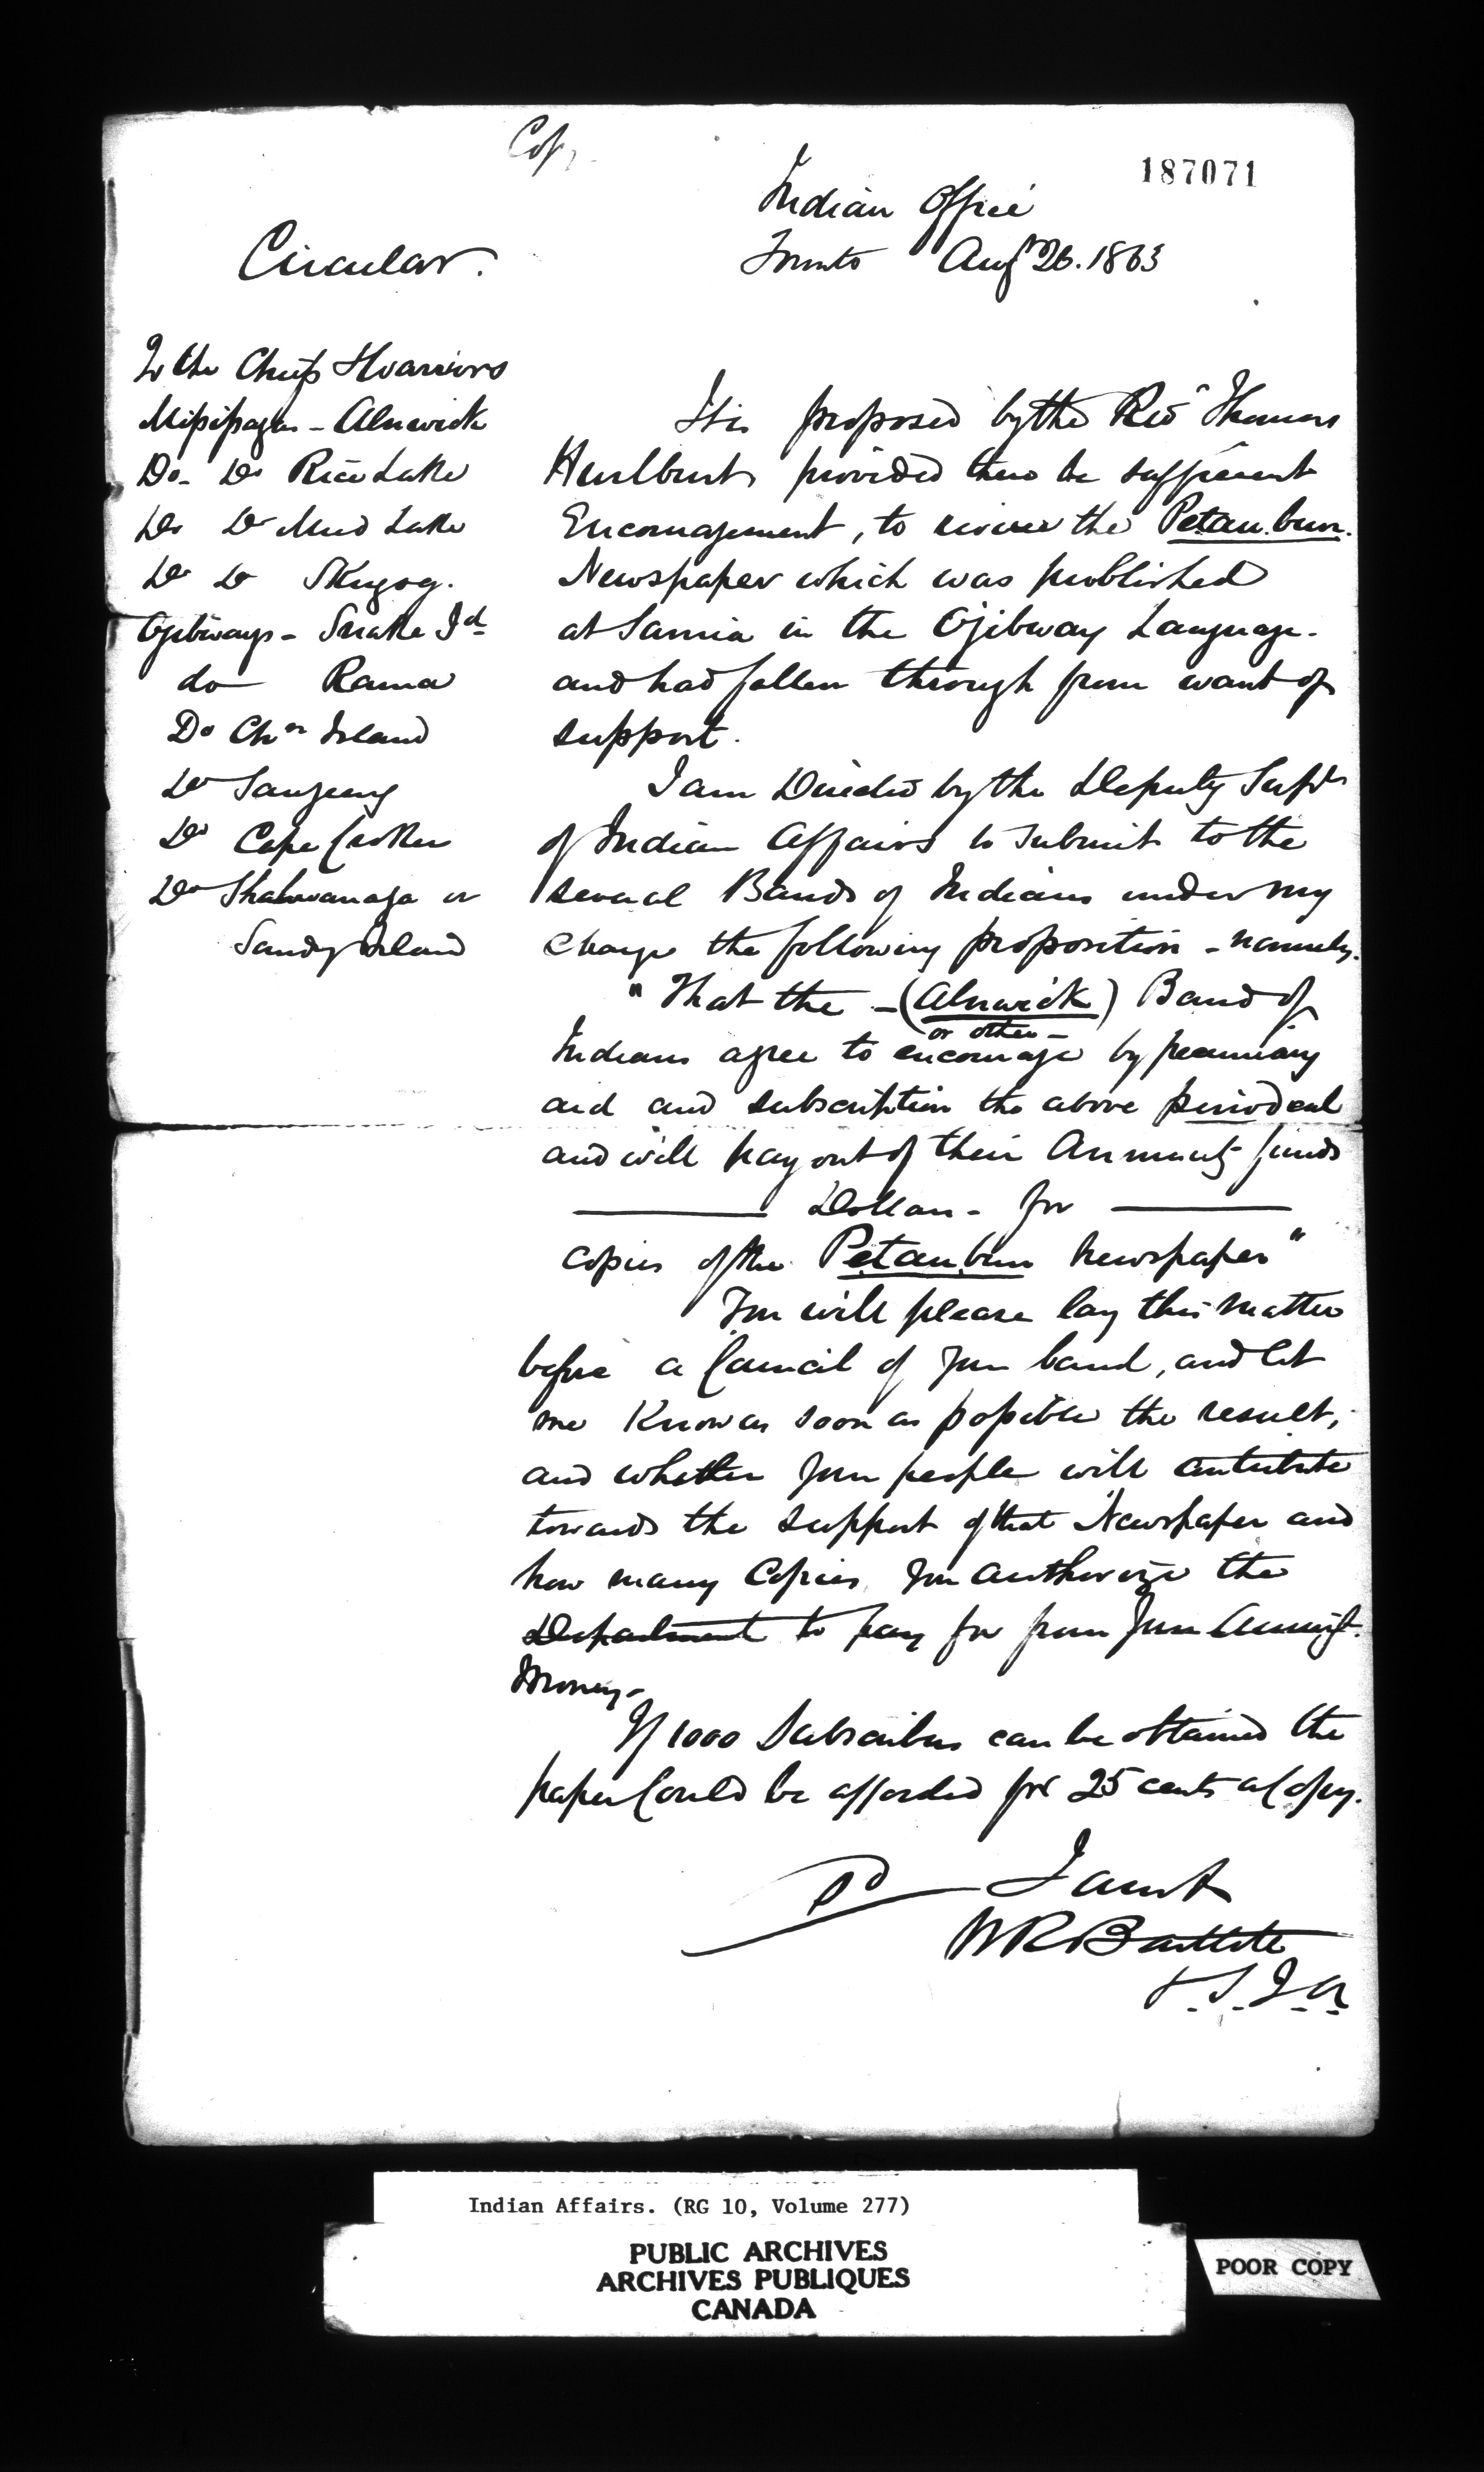 Copy
187071
Indian Office
Toronto Augt 26. 1863
Circular.
To the Chiefs & Warriors
Missisagas - Alnwick
Do. Do Rice Lake
Do Do Mud Lake
Do Do Skugog.
Ojibways - Snake Id
do Rama
Do Chn Island
Do Saugeeng
Do Cape Croker
Do Shahwanaga or
Sandy Island
It is proposed by the Revd Thomas
Hurlburt, provided there be sufficient
Encouragement, to revive the Petaubun.
Newspaper which was published
at Sarnia in the Ojibway Language.
and had fallen through from want of
support.
I am Directed by the Deputy Supt
of Indian Affairs to submit to the
several Bands of Indians under my
charge the following proposition - namely.
"That the - (Alnwick) Band of
or other -
Indians agree to encourage by pecuniary
aid and subscription the above periodical
and will pay out of their Annuity funds
Dollars - for
copies of the Petaubun Newspaper"
You will please lay this matter
before a Council of your band, and let
me Know as soon as possible the result,
and whether your people will contribute
towards the support of that Newspaper and
how many Copies you authorize the
Department to pay for from your Annuity.
Money -
If 1000 Subscribers can be obtained the
paper Could be afforded for 25 cents a Copy.
I am &
WR Bartlett
V. S. I. A.
Indian Affairs. (RG 10, Volume 277)
PUBLIC ARCHIVES
ARCHIVES PUBLIQUES
CANADA
POOR COPY